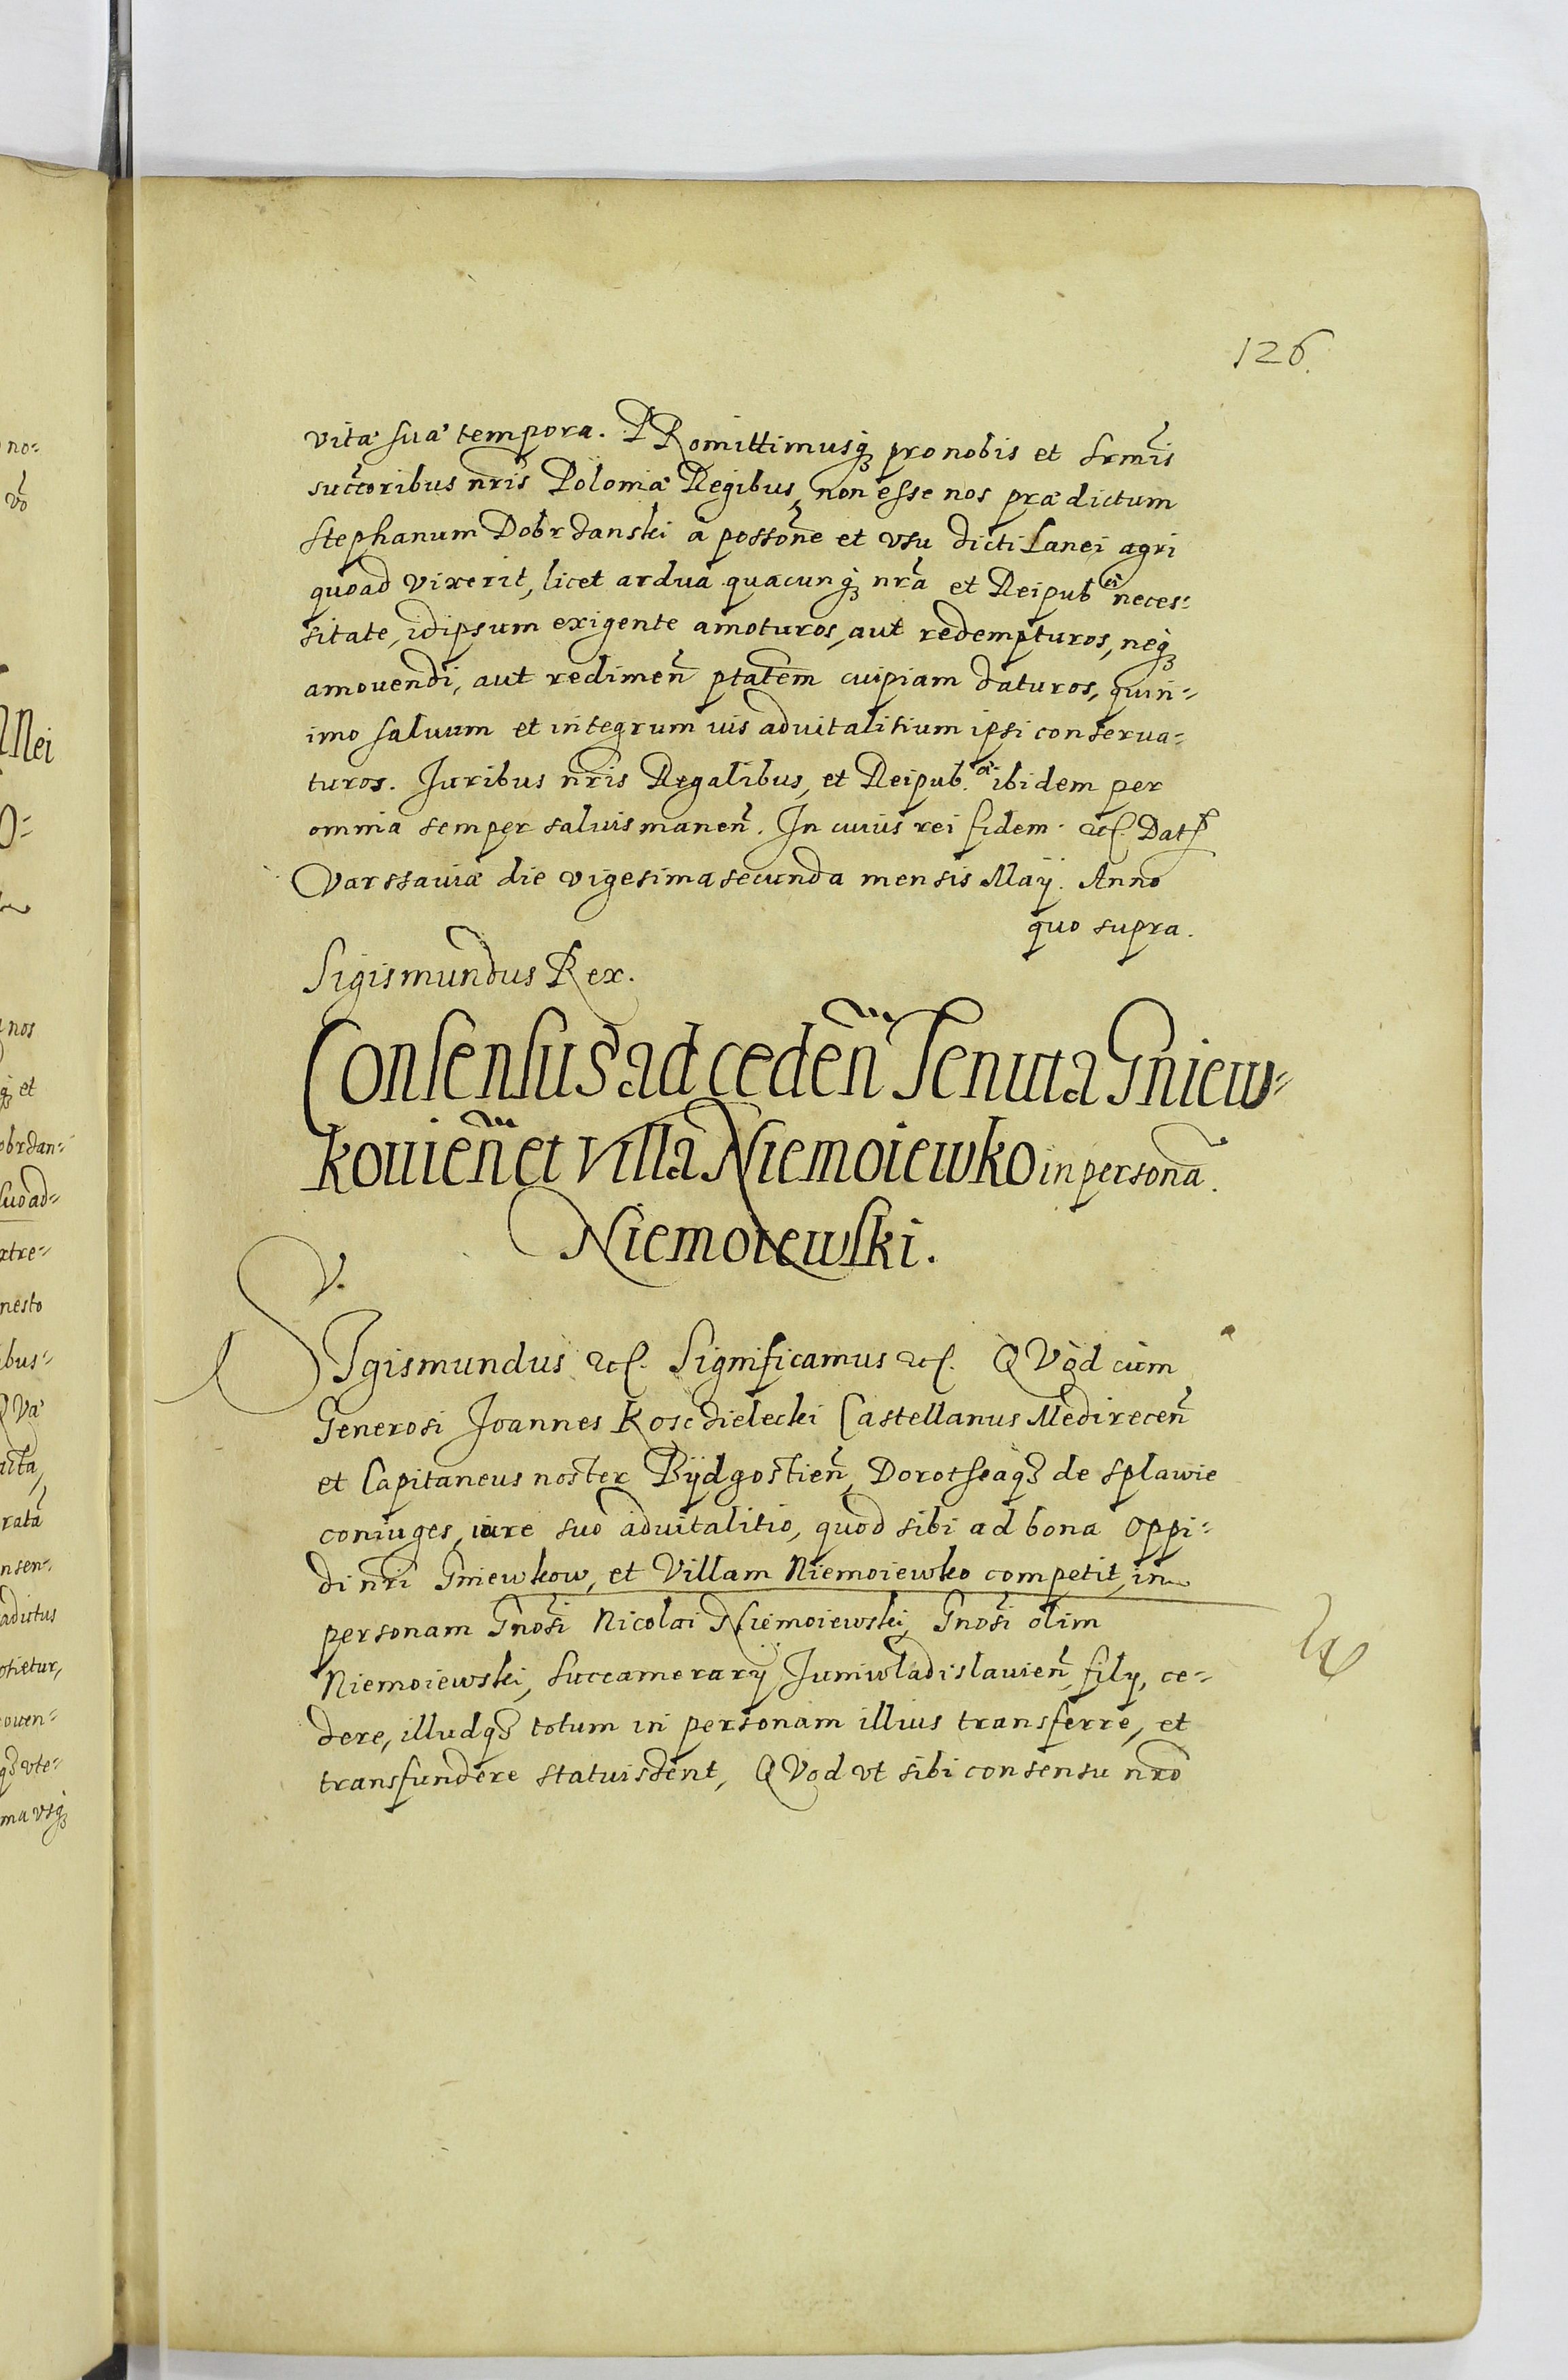 126.
vitæ suæ tempora. PRomittimusq́ȝ pro nobis et Srm̃is
succ̃oribus nr̃is Poloniæ Regibus, non esse nos prædictum
Stephanum Dobrzanski à possõne et vsu dicti Lanei agri
quoad vixerit, licet ardua quacunq́ȝ nr̃a et Reipubᶜᵉⁱ neces-
sitate, idipsum exigente amoturos, aut redempturos, neq́ȝ
amouendi, aut redimeñ ptatem̃ cuipiam daturos, quin-
imo saluum et integrum ius aduitalitium ipsi conserua-
turos. Juribus nr̃is Regalibus, et Reipub.ᶜᵃᵉ ibidem per
omnia semper saluis maneñ. In cuius rei fidem. etc. Dat̃
Varssauiæ die vigesima secunda mensis Maÿ. Anno
quo supra.
Sigismundus Rex.
Consensus ad cedeñ Tenuta Gniew-
kouieñ et villa Niemoiewko in personã.
Niemoiewski.
SIgismundus etc. Significamus etc. QVòd cùm
Generosi Joannes Kosczielecki Castellanus Medireceñ
et Capitaneus noster Bÿdgostieñ, Dorotheaq́ȝ de Splawie
coniuges, iure suo aduitalitio, quod sibi ad bona Oppi-
di nr̃i Gniewkow, et Villam Niemoiewko competit, in
personam Gnosi̇̃ Nicolai Niemoiewski, Gnosi̇̃ olim
Niemoiewski, Succamerarÿ Juniwladislauieñ filÿ, ce-
dere, illudq́ȝ totum in personam illius transferre, et
transfundere statuissent, QVod vt sibi consensu nr̃o